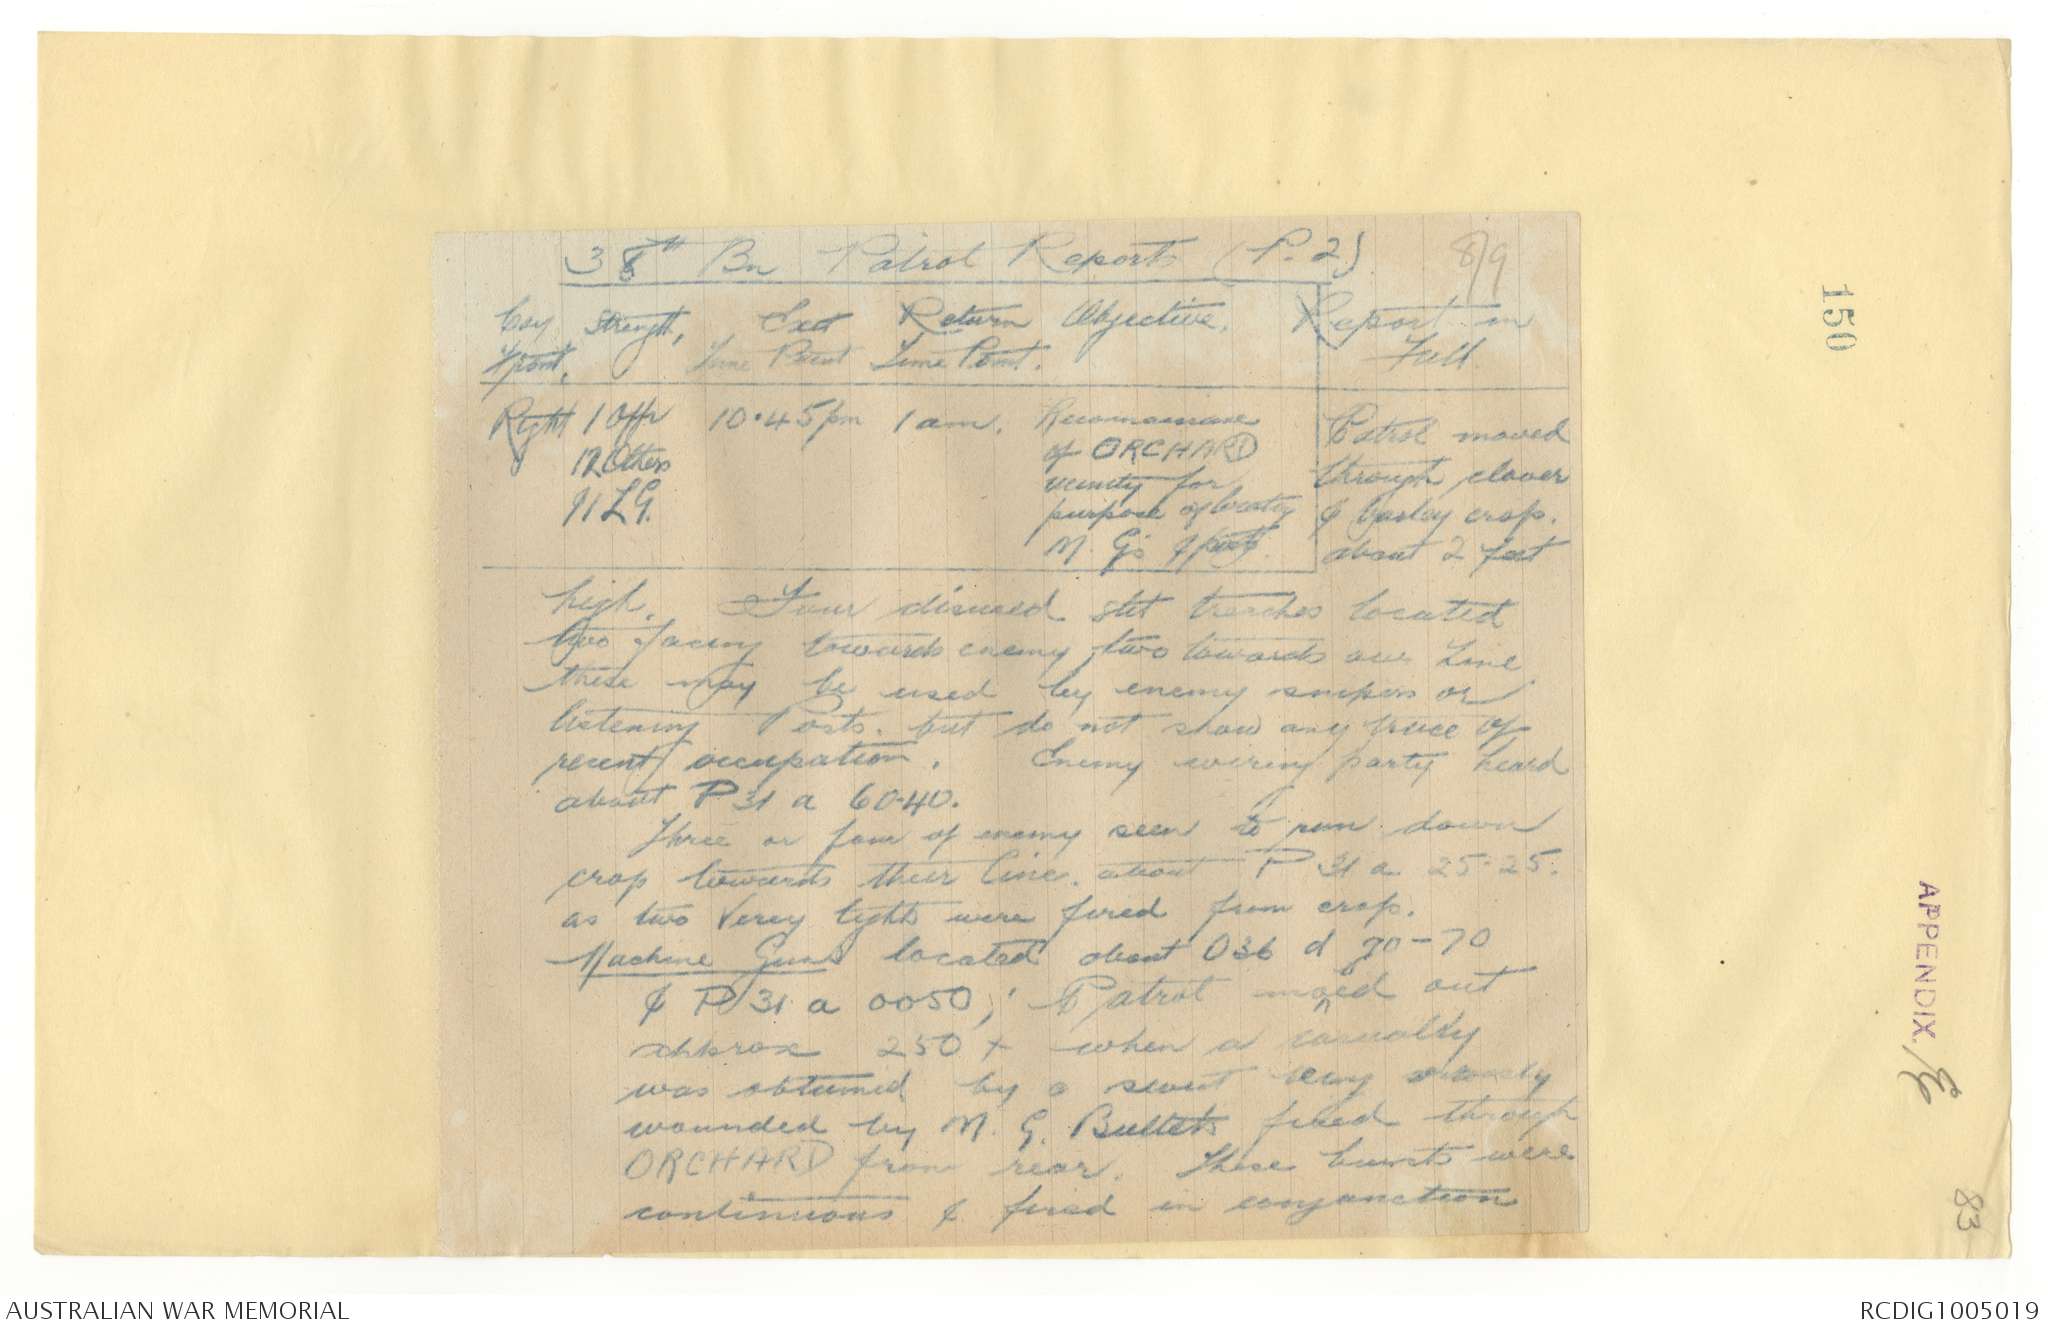 38th Bn Patrol Reports (P.2)
8/9
Coy Strength, Exit Return Objective. Report in
Front. Time Point Time Point. Full.
Right 1 Offr 10.45pm 1 am. Reconnaissance Patrol moved
12 Others of ORCHARD through clover
1 L.G. vicinity for & barley crop.
purpose of locating about 2 feet
M. G's & posts.
high. Four disused slit trenches located
two facing towards enemy, two towards our Line
these may be used by enemy snipers or
listening Posts. but do not show any trace of
recent occupation. Enemy wiring party heard
about P 31 a 60.40.
Three or four of enemy seen to run down
crop towards their line. about P 31 a 25-25.
as two Verey lights were fired from crop.
Machine Guns located about O36 d 70-70
& P 31 a 0050; Patrol moved out
approx 250 x when a casualty
was obtained by a scout being
wounded by M. G. Bullets fired through
ORCHARD from rear. These bursts were
continuous & fired in conjunction
150
APPENDIX.
83
AUSTRALIAN WAR MEMORIAL
RCDIG1005019